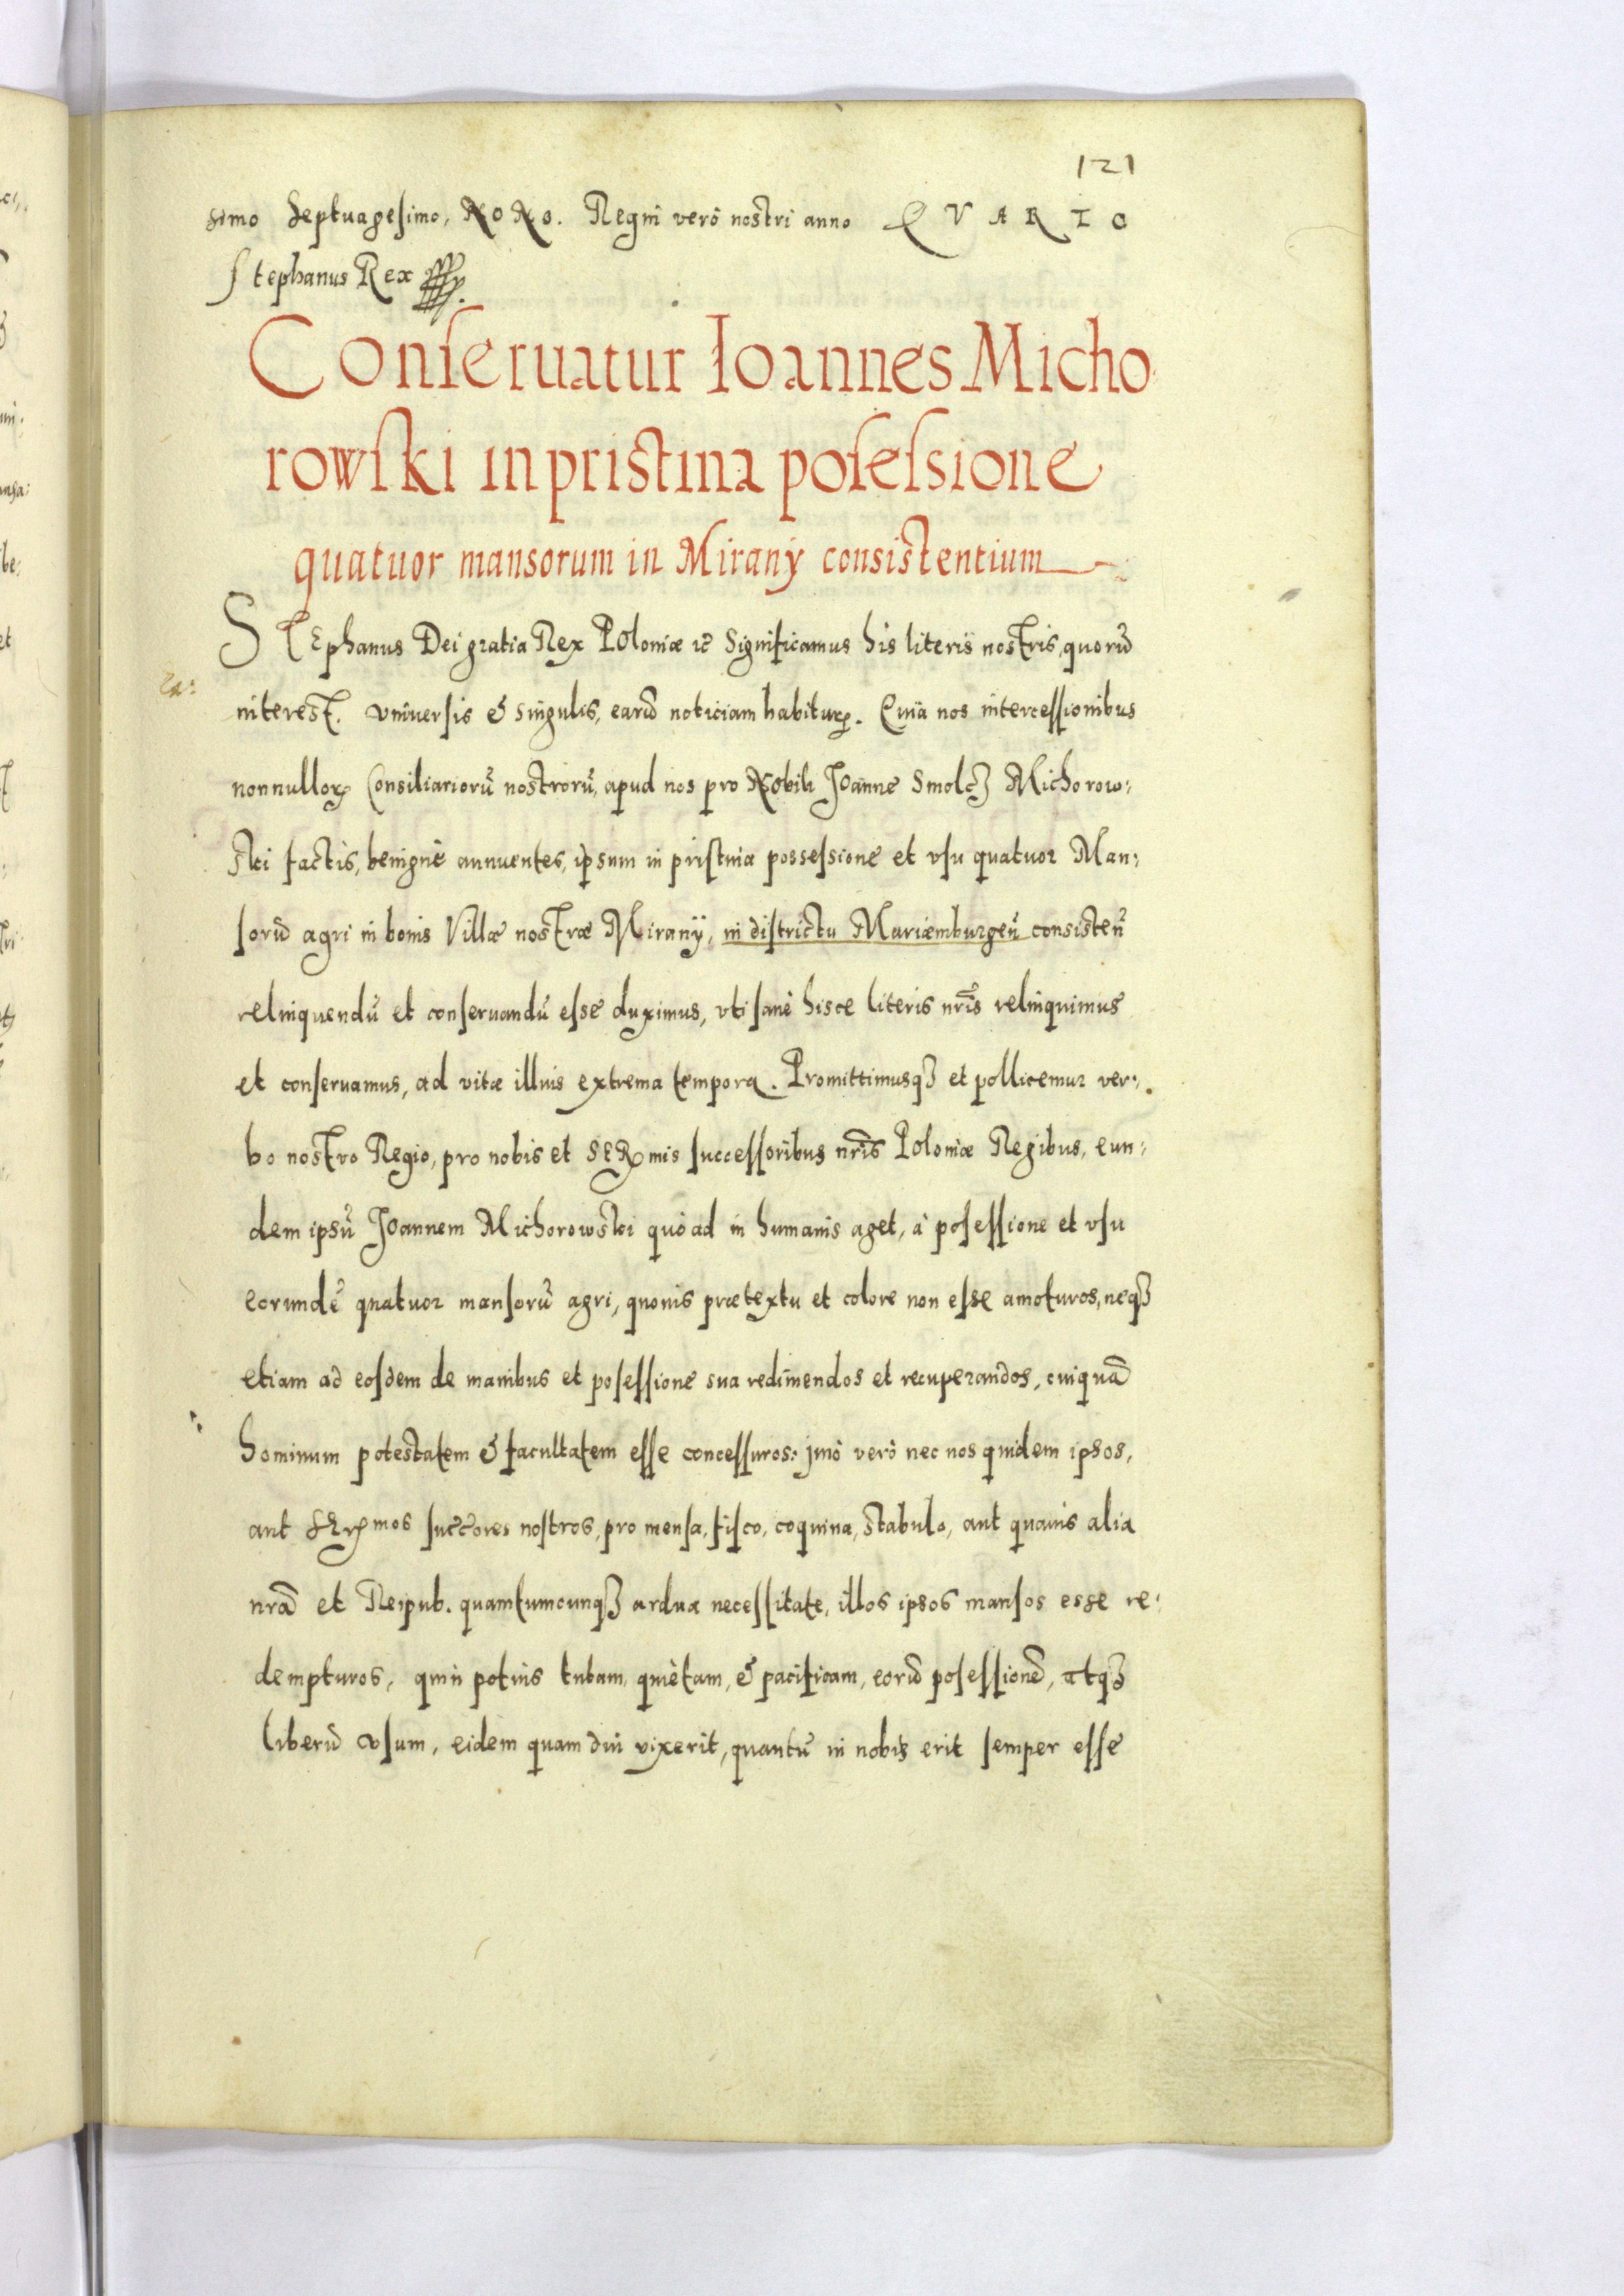 121
simo Septuagesimo, NONO. Regni verò nostri anno QVARTO
Stephanus Rex
Conseruatur Ioannes Micho
rowski in pristina posessione
quatuor mansorum in Mirany consistentium
STEphanus Dei gratia Rex Poloniæ ꝛc̃ Significamus his literis nostris, quorũ
interest. vniuersis & singulis, earũ noticiam habituꝝ. Quia nos intercessionibus
nonnulloꝝ Consiliariorũ nostrorũ, apud nos pro Nobili Joanne Smolcʒ Michorow:
ski factis, benignè annuentes, ipsum in pristina possessione et vsu quatuor Man:
sorũ agri in bonis Villæ nostræ Mirany, in districtu Mariæmburgeñ consisteñ
relinquendũ et conseruandũ esse duximus, vti sanè hisce literis nr̃is relinquimus
et conseruamus, ad vitæ illius extrema tempora. Promittimusqꝫ et pollicemur ver:
bo nostro Regio, pro nobis et SERmis successoribus nr̃is Poloniæ Regibus, eun:
dem ipsũ Joannem Michorowski quòad in humanis aget, à posessione et vsu
eorundẽ quatuor mansorũ agri, quouis prætextu et colore non esse amoturos, neqꝫ
etiam ad eosdem de manibus et posessione sua redimendos et recuperandos, cuiquã
hominum potestatem & facultatem esse concessuros: jmò verò nec nos quidem ipsos,
aut SERmos succ̃ores nostros, pro mensa, fisco, coquina, stabulo, aut quauis alia
nrã et Reipub. quamtumcunqꝫ ardua necessitate, illos ipsos mansos esse re:
dempturos, quin potius tutam, quiètam, & pacificam, eorũ posessionẽ, atqꝫ
liberũ vsum, eidem quam diu vixerit, quantũ in nobis erit semper esse